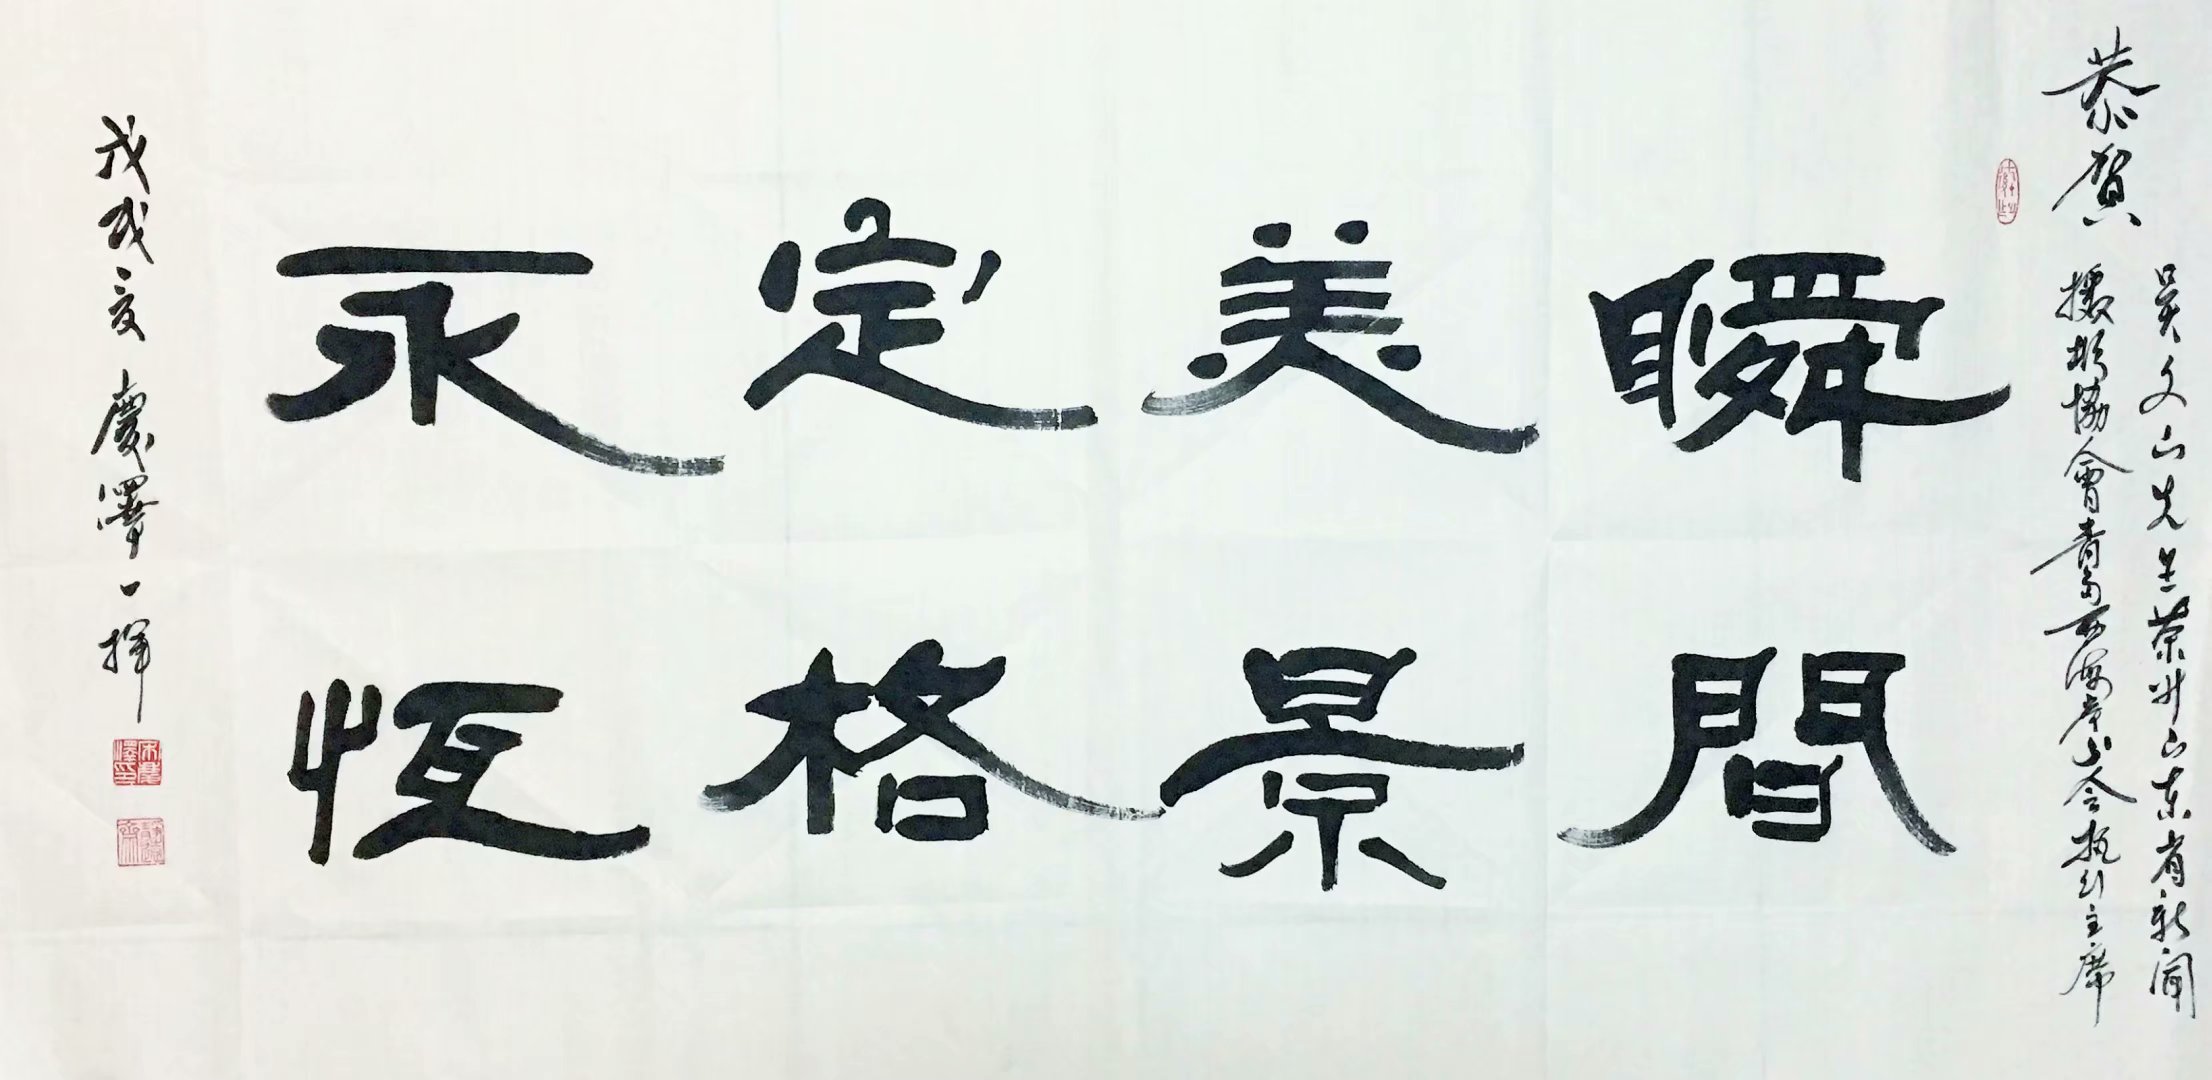 恭賀
吴文山先生荣升山东省新闻
摄影协會青岛西海岸分会执行主席
瞬間
美景
定格
永恆
戊戌之夏慶澤一挥